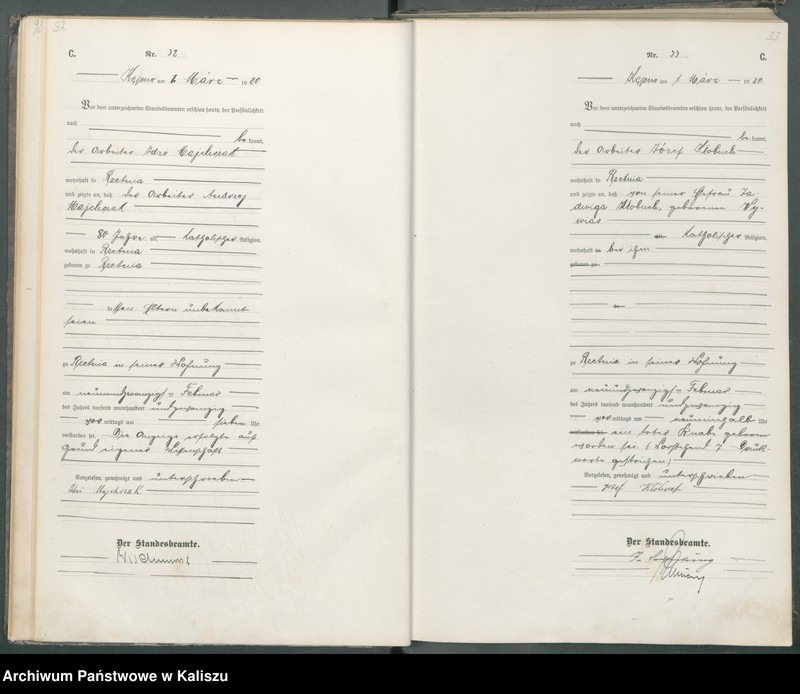 32
C.
Nr. 32
am 1 März 1920
Vor dem unterzeichneten Standesbeamten erschien heute, der Persönlichkeit
nach
be kannt,
der Arbeiter Idzi Majchrzak
wohnhaft in Rzetnia
und zeigte an, daß der Arbeiter Andrzej
Majchrzak
80 Jahre alt, Katholischer Religion,
wohnhaft in Rzetnia
geboren zu Rzetnia
dessen Eltern unbekannt
seien
zu Rzetnia in seiner Wohnung
am neunundzwanzigsten Februar
des Jahres tausend neunhundert undzwanzig
vor mittags um sieben Uhr
verstorben sei. Die Anzeige erfolgte auf
Grund eigener Wissenschaft.
Vorgelesen, genehmigt und unterschrieben
Idzi Majchrzak
Der Standesbeamte.
33
C.
Nr. 33
am 1 März 1920
Vor dem unterzeichneten Standesbeamten erschien heute, der Persönlichkeit
nach
be kannt,
der Arbeiter Józef Kłobuch
wohnhaft in Rzetnia
und zeigte an, daß von seiner Ehefrau Ja-
dwiga Kłobuch, geborenen
alt, Katholischer Religion,
wohnhaft in bei ihm
geboren zu
zu Rzetnia in seiner Wohnung
am neunundzwanzigsten Februar
des Jahres tausend neunhundert undzwanzig
vor mittags um neuneinhalb Uhr
verstorben sei eine totes Knabe geboren
worden sei. (Vorstehend 7 Druck-
worte gestrichen)
Vorgelesen, genehmigt und unterschrieben
Józef Kłobuch
Der Standesbeamte.
Archiwum Państwowe w Kaliszu